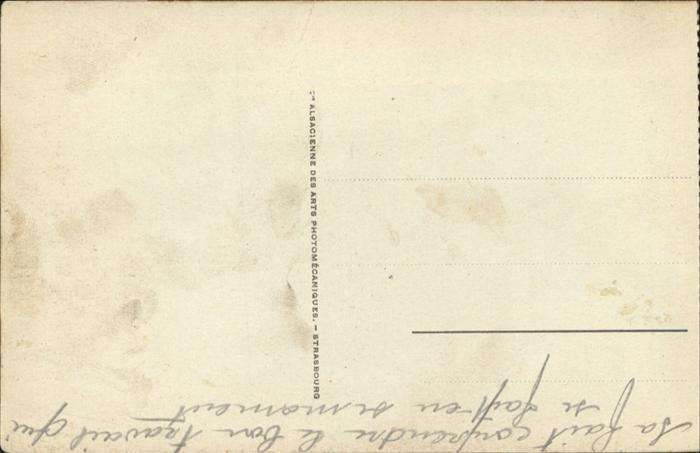 ALSACIENNE DES ARTS PHOTOMÉCANIQUES. — STRASBOURG
Sa fait conprendre le bon travail qui
se fait en se moment